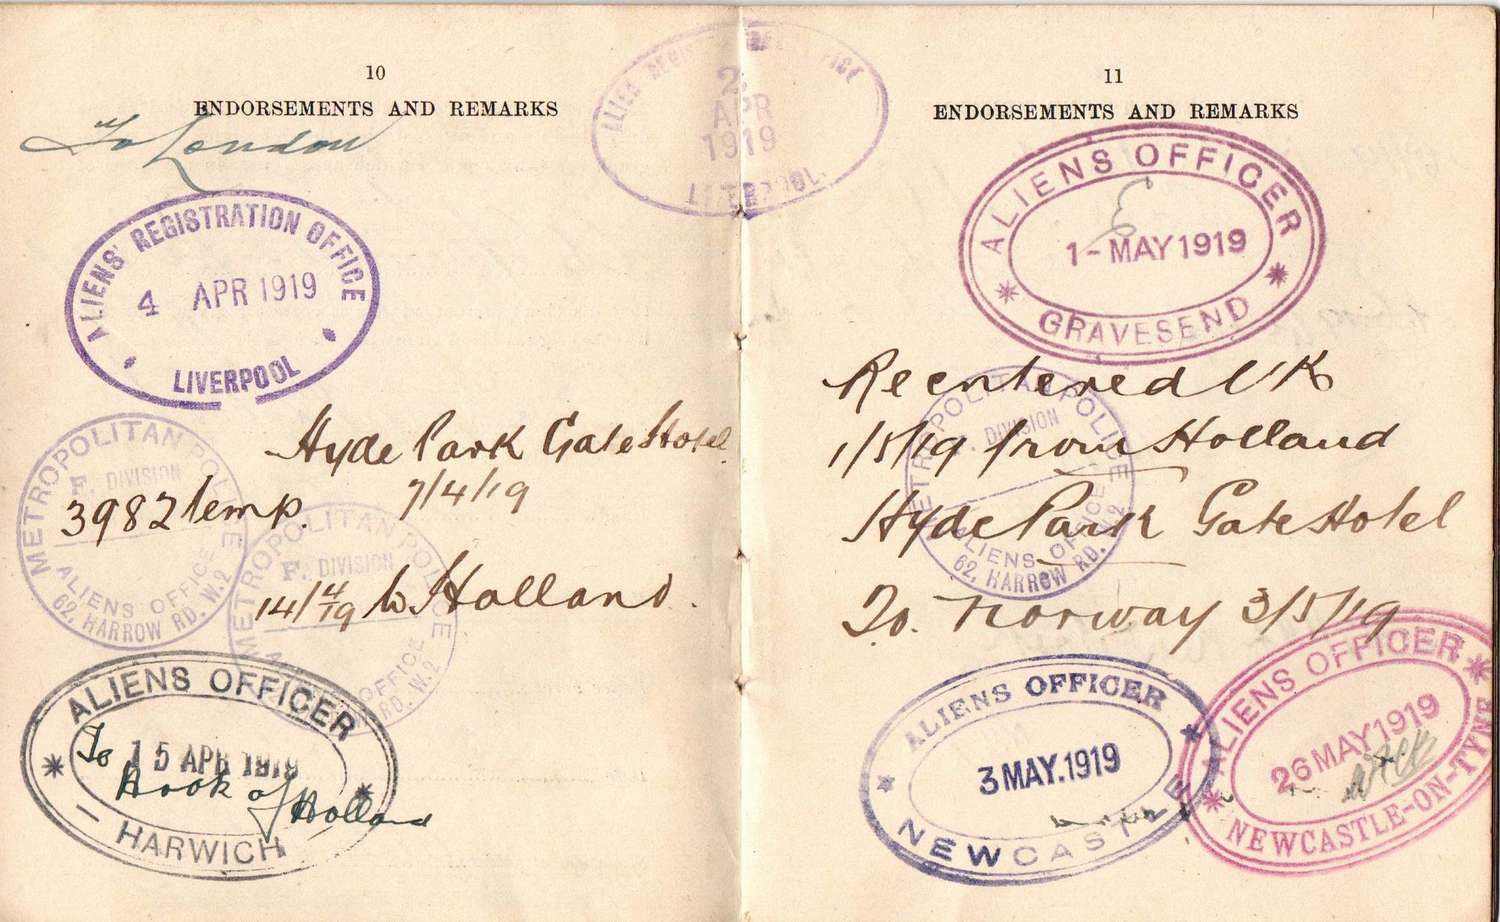 10
ENDORSEMENTS AND REMARKS
To London
ALIENS' REGISTRATION OFFICE
4 APR 1919
LIVERPOOL
METROPOLITAN POLICE
F. DIVISION
ALIENS OFFICE
62, HARROW RD. W.2
Hyde Park Gate Hotel
7/4/19
3982 temp.
METROPOLITAN POLICE
F. DIVISION
OFFICE
RD. W.2
14/4/19 to Holland.
ALIENS OFFICER
15 APR 1919
To Hook of Holland
HARWICH
2 APR 1919
LIVERPOOL
11
ENDORSEMENTS AND REMARKS
ALIENS OFFICER
1 - MAY 1919
GRAVESEND
Reentered UK
1/5/19 from Holland
Hyde Park Gate Hotel
METROPOLITAN POLICE
DIVISION
ALIENS OFFICE
62, HARROW RD. W.2
To. Norway 3/5/19
ALIENS OFFICER
3 MAY.1919
NEWCASTLE
ALIENS OFFICER
26 MAY 1919
NEWCASTLE-ON-TYNE